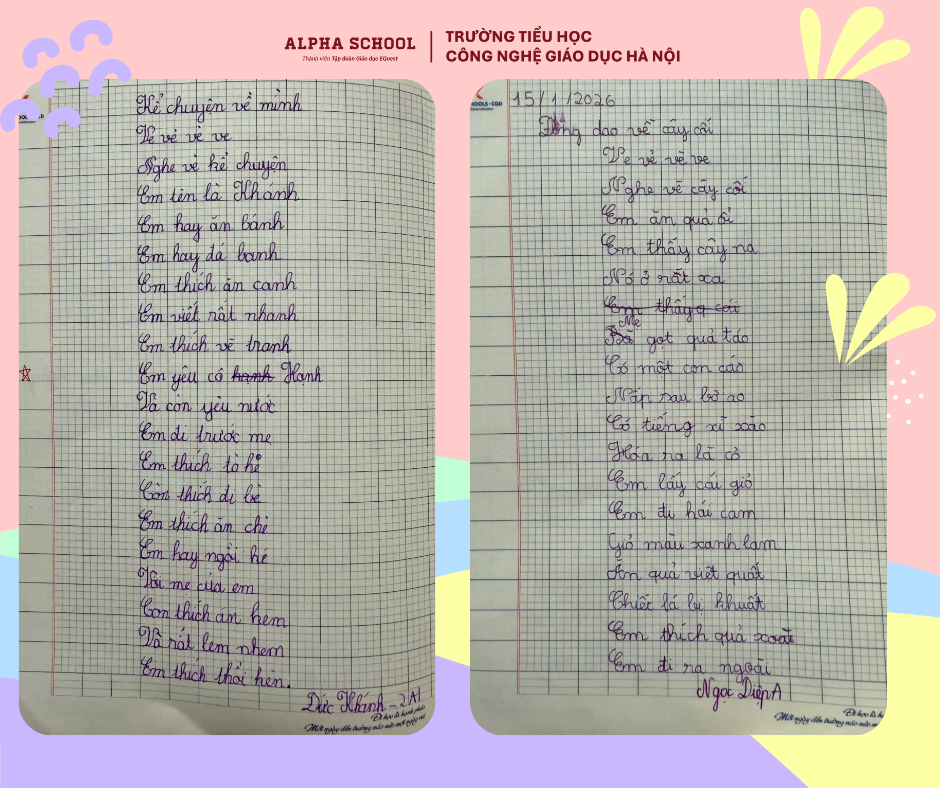 ALPHA SCHOOL
Thành viên Tập đoàn Giáo dục EQuest
TRƯỜNG TIỂU HỌC
CÔNG NGHỆ GIÁO DỤC HÀ NỘI
Kể chuyện về mình
Ve vẻ vè ve
Nghe vè kể chuyện
Em tên là Khánh
Em hay ăn bánh
Em hay đá banh
Em thích ăn canh
Em viết rất nhanh
Em thích vẽ tranh
Em yêu cô hạnh Hạnh
Và còn yêu nước
Em đi trước mẹ
Em thích tò he
Còn thích đi bè
Em thích ăn chè
Em hay ngồi hè
Với mẹ của em
Con thích ăn kem
Và rất lem nhem
Em thích thổi kèn.
Đức Khánh - 2A1
Đi học là hạnh phúc
Mỗi ngày đến trường náo nức một ngày vui
OOLS - CGD
15/1/2026
Đồng dao về cây cối
Ve vẻ vè ve
Nghe vẽ cây cối
Em ăn quả ổi
Em thấy cây na
Nó ở rất xa
Em thấy cái
Mẹ gọt quả táo
Có một con cáo
Nấp sau bờ ao
Có tiếng xì xào
Hóa ra là cỏ
Em lấy cái giỏ
Em đi hái cam
Giỏ màu xanh lam
Ăn quả việt quất
Chiếc lá bị khuất
Em thích quả xoài
Em đi ra ngoài
Ngọc Diệp A1
Đi học là h
Mỗi ngày đến trường náo nức m